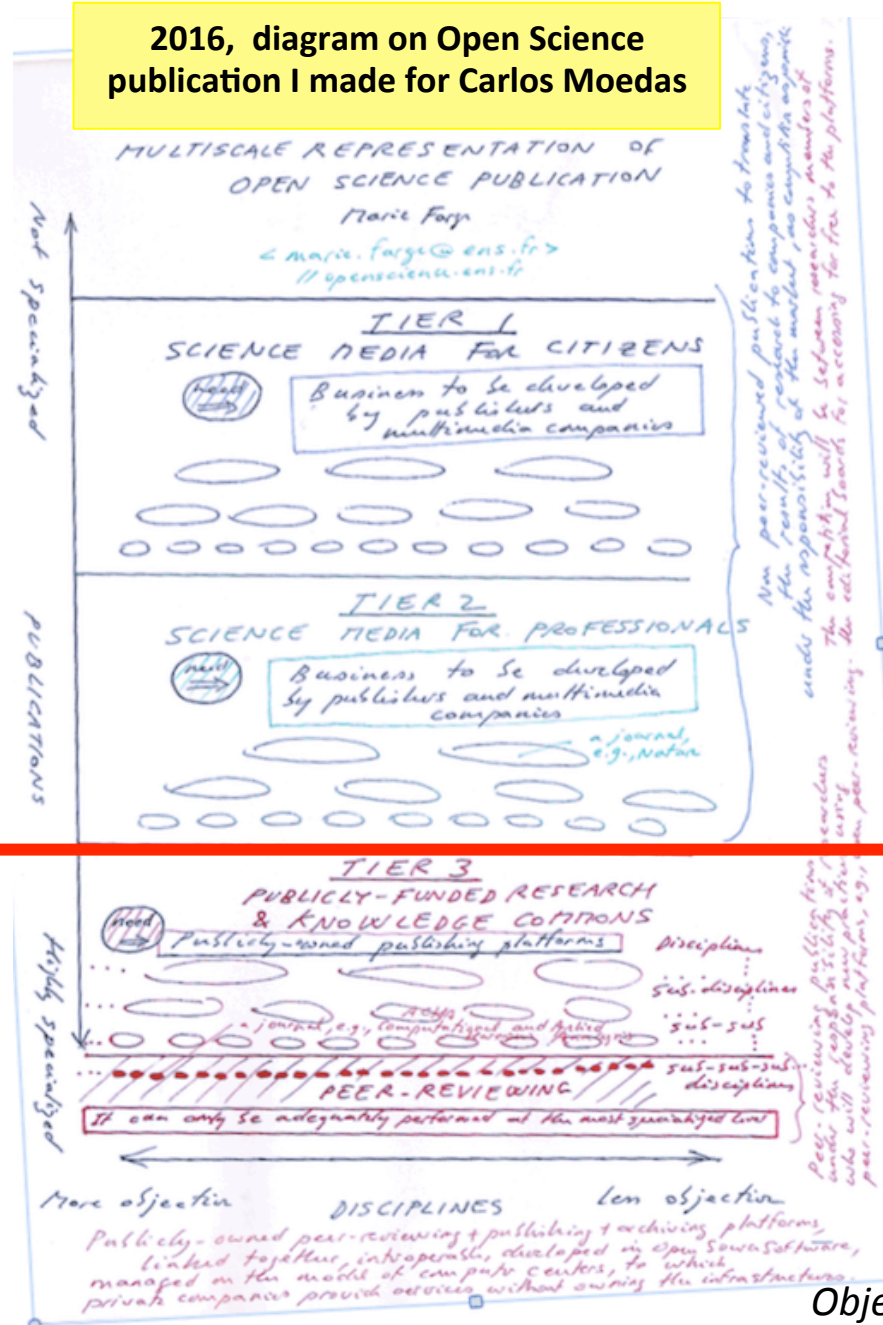 2016, diagram on Open Science
publication I made for Carlos Moedas
MULTISCALE REPRESENTATION OF
OPEN SCIENCE PUBLICATION
Marie Farge
< marie.farge@ens.fr >
//openscience.ens.fr
Not specialized
PUBLICATIONS
Highly specialized
TIER 1
SCIENCE MEDIA FOR CITIZENS
need
Business to be developed
by publishers and
multimedia companies
TIER 2
SCIENCE MEDIA FOR PROFESSIONALS
need
Business to be developed
by publishers and multimedia
companies
a journal,
e.g., Nature
Non peer-reviewed publications to translate
the results of research to companies and citizens,
under the responsibility of the market, as competition
The competition will be between researchers members of
the editorial boards for accessing for free to the platforms.
TIER 3
PUBLICLY-FUNDED RESEARCH
& KNOWLEDGE COMMONS
need
Publicly-owned publishing platforms
Disciplines
sub-disciplines
a journal, e.g., Computational and Applied
Harmonic Analysis
sub-sub
sub-sub-sub-
disciplines
PEER-REVIEWING
It can only be adequately performed at the most specialized level
Peer-reviewing publications
under the responsibility of researchers
who will develop new practices using
peer-reviewing platforms, e.g., open peer-reviewing.
More objective
DISCIPLINES
Less objective
Publicly-owned peer-reviewing + publishing + archiving platforms,
linked together, interoperable, developed in Open Source Software,
managed on the model of computer centers, to which
private companies provide services without owning the infrastructures.
Obje